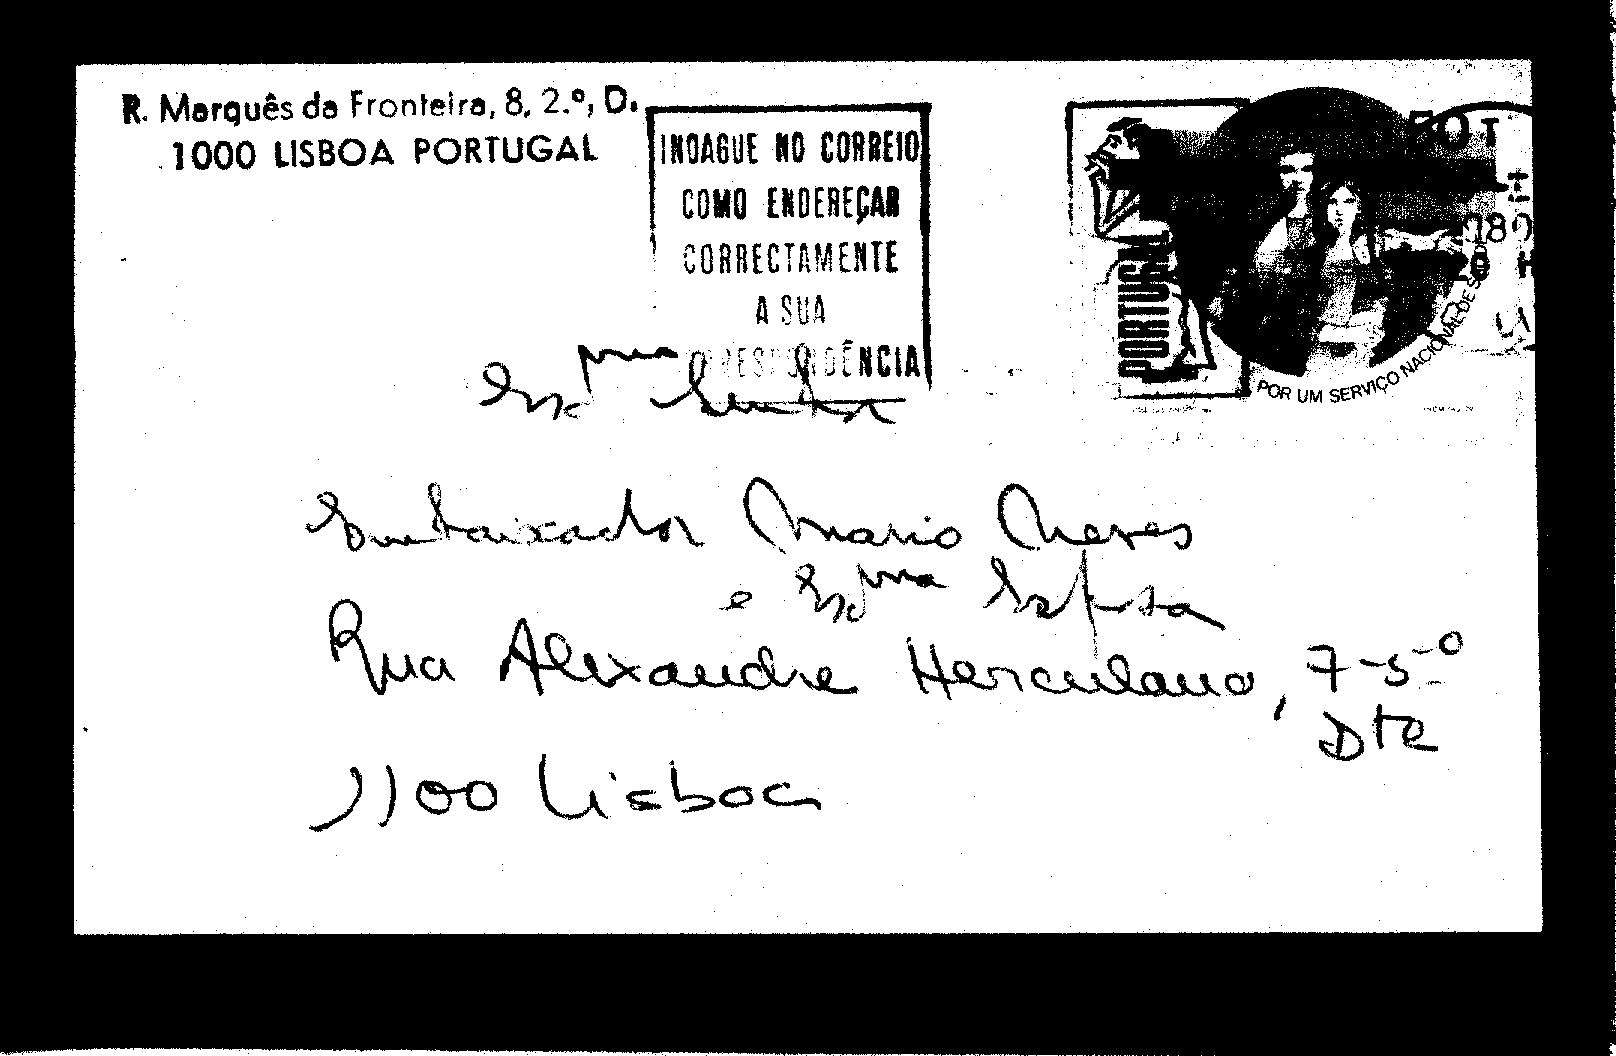 R. Marquês da Fronteira, 8, 2.º, D.
1000 LISBOA PORTUGAL
INDAGUE NO CORREIO
COMO ENDEREÇAR
CORRECTAMENTE
A SUA
CORRESPONDÊNCIA
PORTUGAL
POR UM SERVIÇO NACIONAL DE
Exmo Senhor
Embaixador Mario Neves
e Exma Esposa
Rua Alexandre Herculano, 7-5-º
Dto
1100 Lisboa